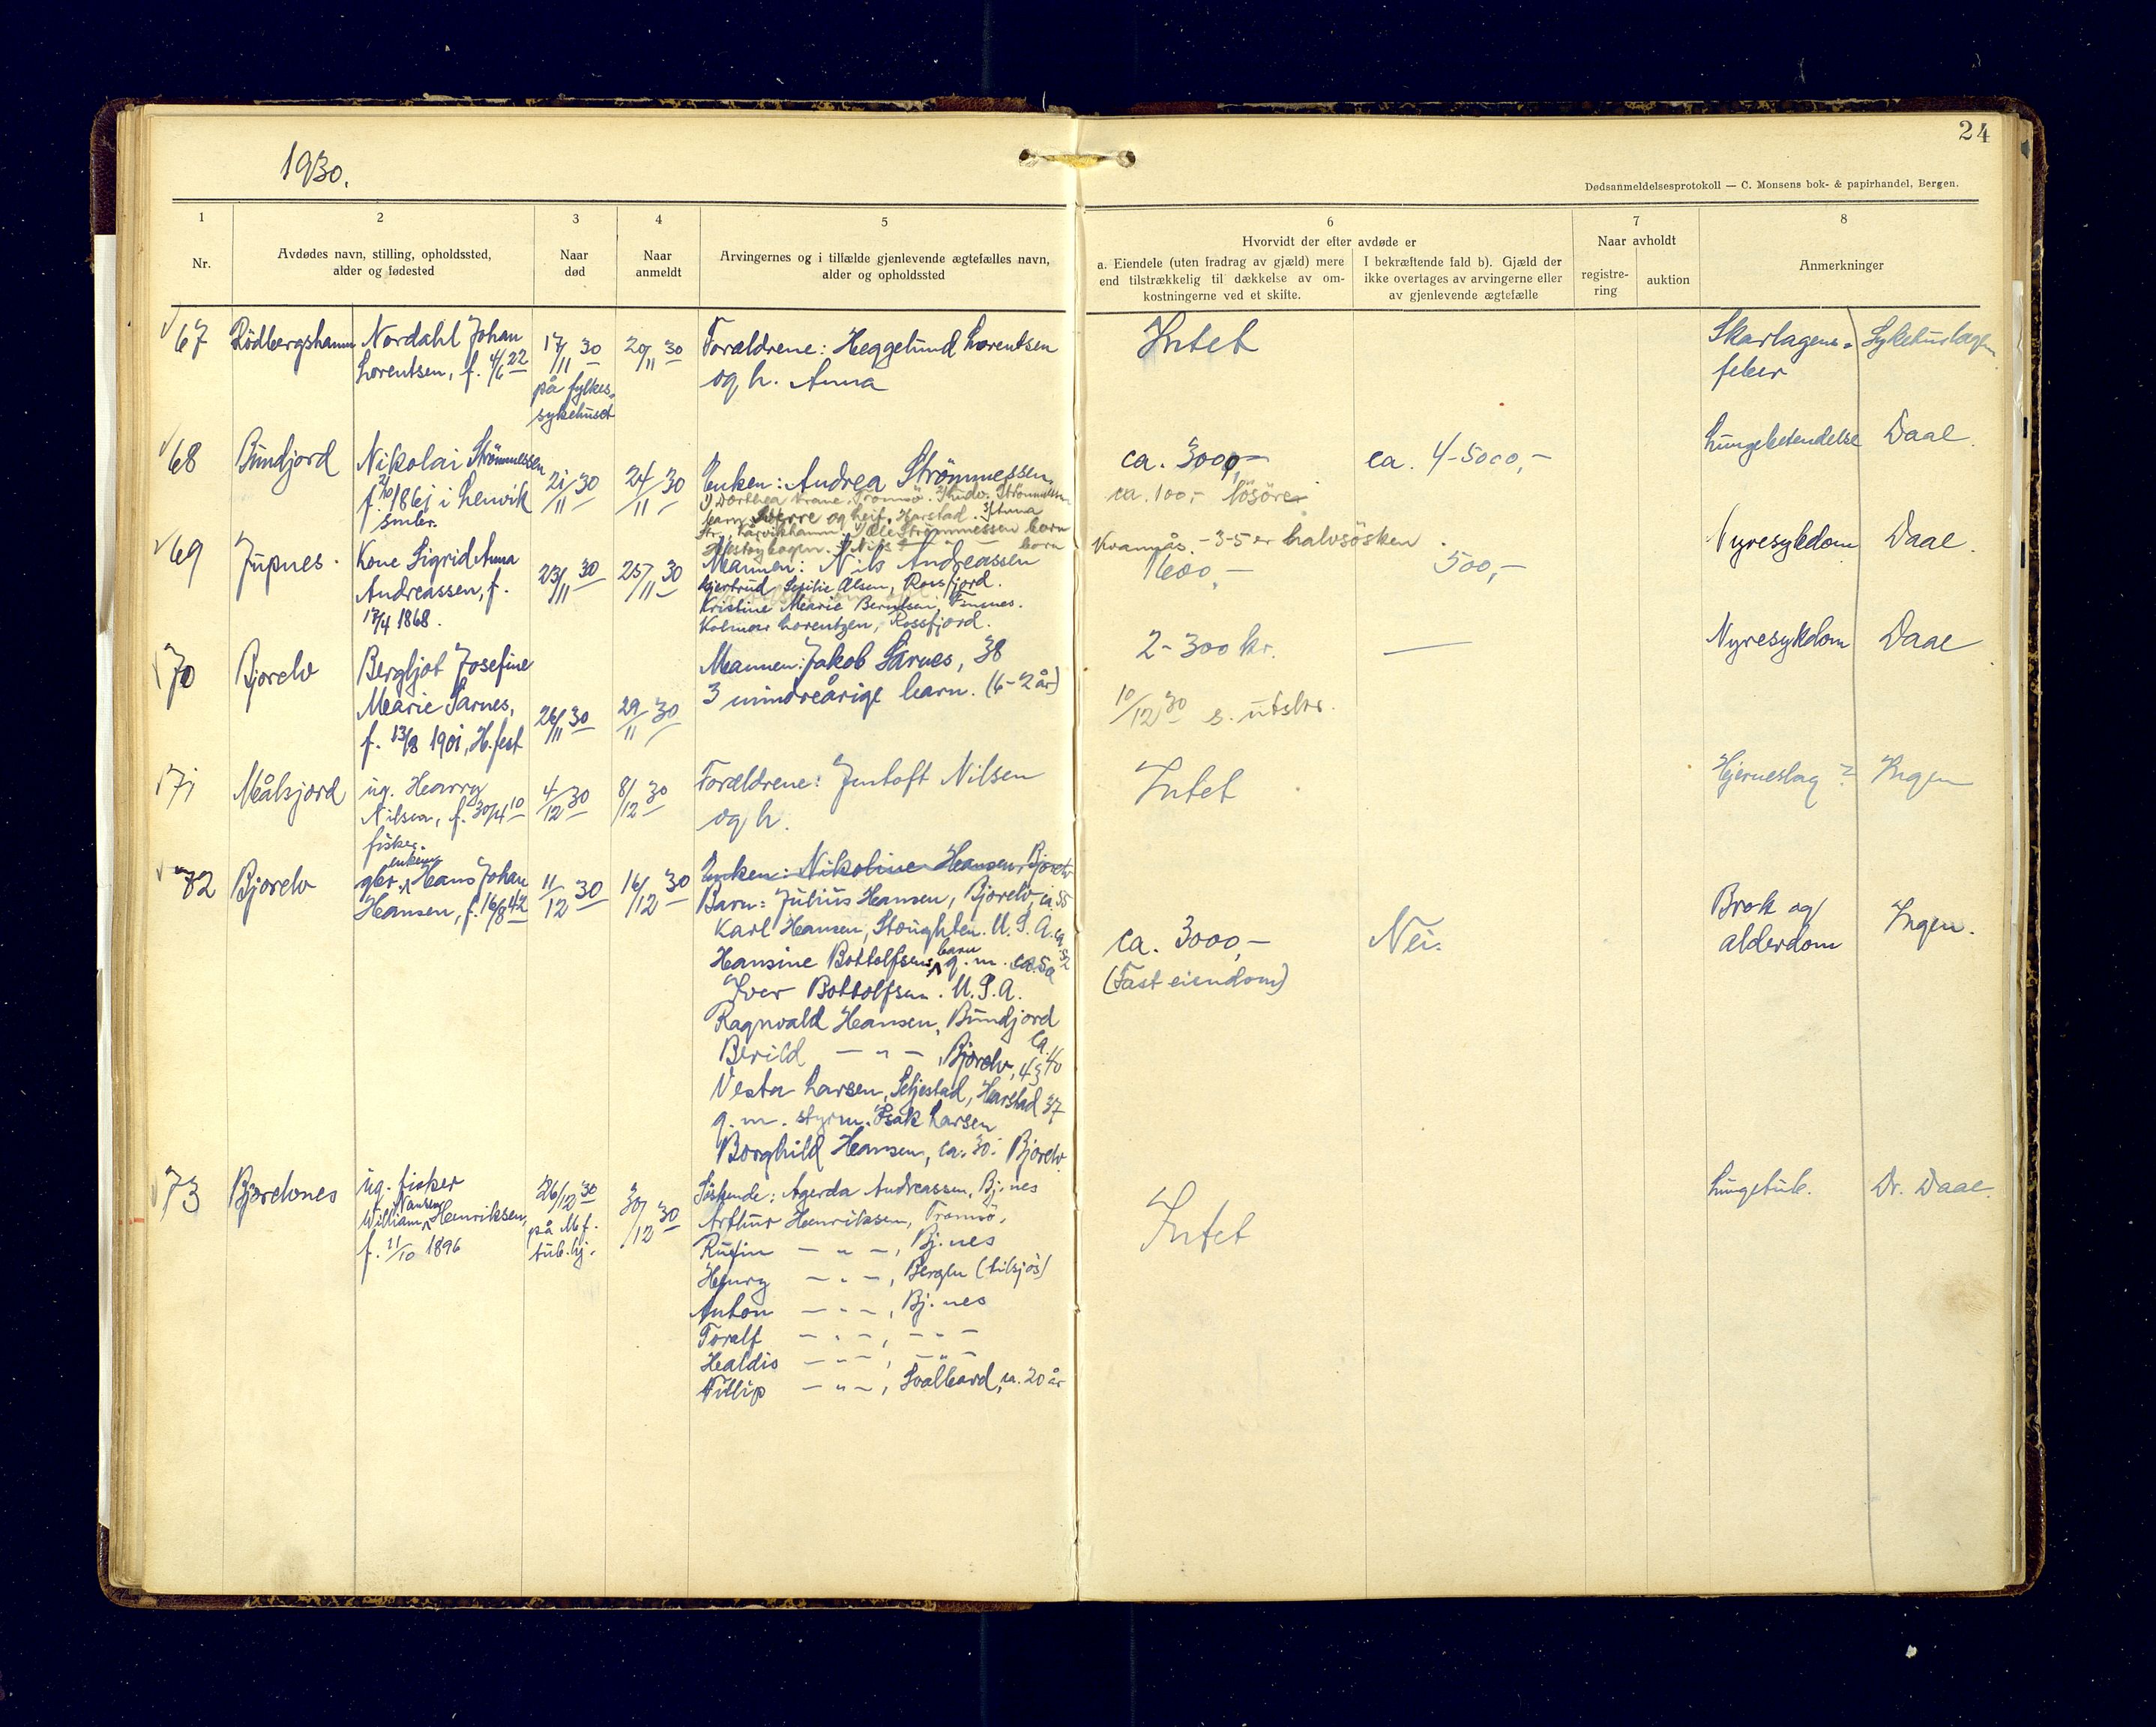 24
1930.
Dødsanmeldelsesprotokoll — C. Monsens bok- & papirhandel, Bergen.
1 2 3 4 5 6 7 8
Nr.
Avdødes navn, stilling, opholdssted,
alder og fødested
Naar
død
Naar
anmeldt
Arvingernes og i tilfælde gjenlevende ægtefælles navn,
alder og opholdssted
Hvorvidt der efter avdøde er
a. Eiendele (uten fradrag av gjæld) mere
end tilstrækkelig til dækkelse av om-
kostningerne ved et skifte.
I bekræftende fald b). Gjæld der
ikke overtages av arvingerne eller
av gjenlevende ægtefælle
Naar avholdt
registre-
ring
auktion
Anmerkninger
67 Rödbergshamn
Nordahl Johan
Lorentsen, f. 4/6 22
17/11 30
på fylkes-
sykehuset
20/11 30
Forældrene: Heggelund Lorentsen
og h. Anna
Intet
Skarlagens-
feber
68 Bundjord
Nikolai Strömmessen
f. 21/10 1861 i Lenvik
smbr.
21/11 30
24/11 30
Enken: Andrea Strömmessen
1) Dorthea Krane, Tromsö.
Sverre og Leif, Harstad. 3) Anna
4) Ole Strömmessen
5) Nils
ca. 3000,-
ca. 100,- lösöre
Kvannås. - 3-5 er halvsösken
ca. 4-5000,-
Lungebetendelse
Daae.
69 Jupnes.
Kone Sigrid Anna
Andreassen, f.
17/4 1868.
23/11 30
25/11 30
Mannen: Nils Andreassen
Gjertrud Sesilie Olsen, Rossfjord.
Kristine Marie Berntsen, Finnes.
Kolmar Lorentzen, Rossfjord.
1600,-
500,-
Nyresykdom
Daae.
70 Bjorelv
Bergljot Josefine
Marie Sarnes,
f. 13/8 1901, H.fest
26/11 30
29/11 30
Mannen: Jakob Sarnes, 38
3 mindreårige barn. (6-2 år)
2-300 kr.
10/12 30 s. utskr.
—
Nyresykdom
Daae
71 Målsjord
ug. Harry
Nilsen, f. 30/4 10
fisker.
4/12 30
8/12 30
Forældrene: Jentoft Nilsen
og h.
Intet
Hjerneslag?
Ingen
72 Bjorelv
gbr. enkem. Hans Johan
Hansen, f. 16/8 42
11/12 30
16/12 30
Enken: Nikoline Hansen, Bjorelv
Barn: Julius Hansen, Bjorelv, ca. 55
Karl Hansen, Stoughten. U.S.A. ca. 52
Hansine Bottolfsens barn g.m. ca. 50
Iver Bottolfsen. U.S.A.
Ragnvald Hansen, Bundjord
Berild — " — , Bjorelv, 43
ca. 40
Vesta Larsen, Seljestad, Harstad 37
g.m. styrm. Isak Larsen
Borghild Hansen, ca. 30. Bjorelv
ca. 3000,-
(Fast eiendom)
Nei.
Brok og
alderdom
Ingen.
73 Bjorelvnes
ug. fisker
William Nansen Henriksen,
f. 11/10 1896
26/12 30
på M.f.
tub.hj.
30/12 30
Söskende: Agerda Andreassen, Bj.nes
Arthur Henriksen, Tromsö.
Rufin — " — , Bj.nes
Henry — " — , Bergen (tilsjös)
Anton — " — , Bj.nes
Toralf — " — , — " —
Haldis — " — , — " —
Fillip — " — , Svalbard, ca. 20 år
Intet
Lungetub.
Dr. Daae.